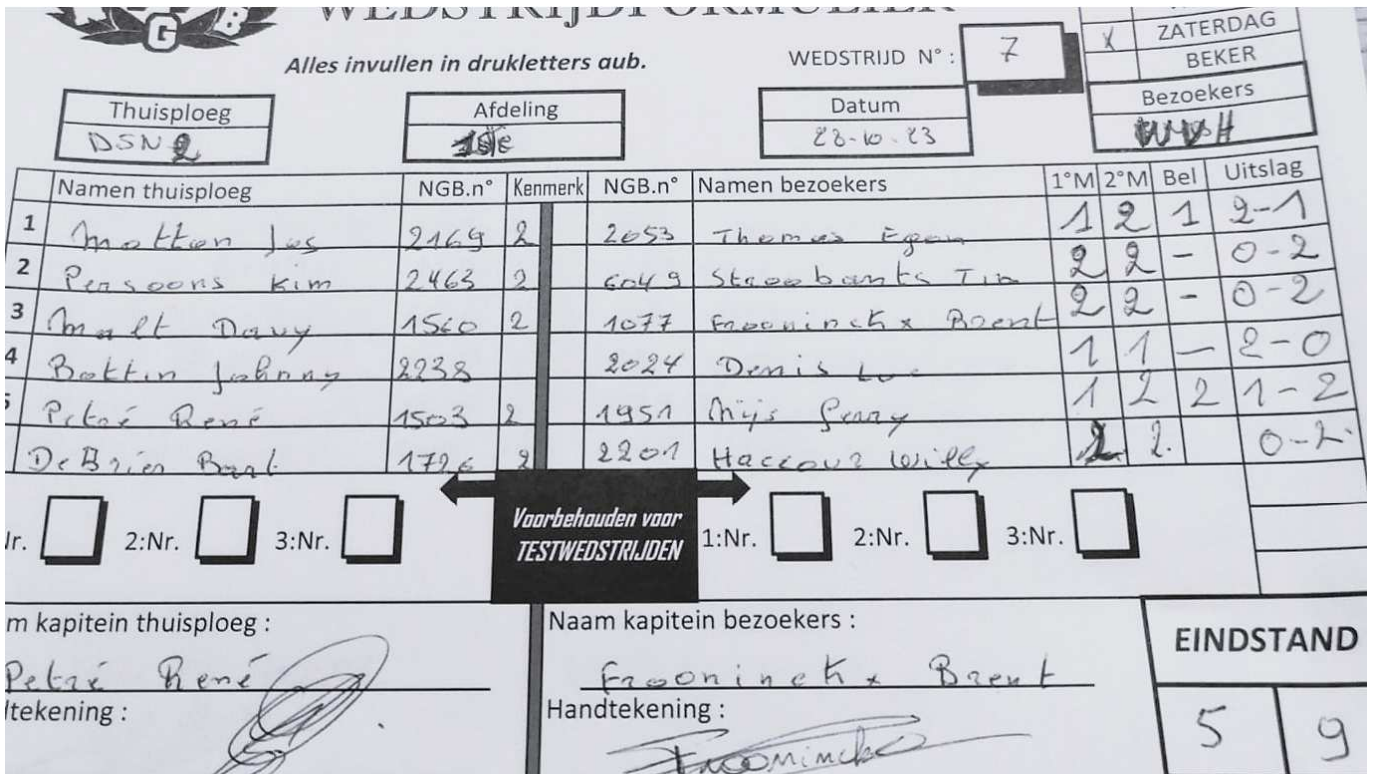 G B
WEDSTRIJDFORMULIER
ZATERDAG
X
BEKER
Alles invullen in drukletters aub.
WEDSTRIJD N° : 7
Thuisploeg Afdeling Datum Bezoekers
DSN 2 1ste 28-10-23
Namen thuisploeg NGB.n° Kenmerk NGB.n° Namen bezoekers 1°M 2°M Bel Uitslag
1 Motton Jos 2169 2 2053 Thomas Egon 1 2 1 2-1
2 Persoons Kim 2463 2 6049 Stroobants Tim 2 2 - 0-2
3 Malt Davy 1560 2 1077 Frooninckx Brent 2 2 - 0-2
4 Bottin Johnny 2238 2024 Denis Luc 1 1 - 2-0
5 Petré René 1503 2 1951 Nijs 1 2 2 1-2
DeBrier Bart 1726 2 2201 Haccour Willy 2 2. 0-2.
Nr. 2:Nr. 3:Nr. Voorbehouden voor TESTWEDSTRIJDEN 1:Nr. 2:Nr. 3:Nr.
m kapitein thuisploeg : Naam kapitein bezoekers :
Petré René Frooninckx Brent
tekening : Handtekening :
Frooninckx
EINDSTAND
5 9